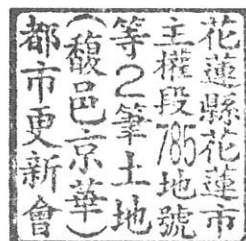 花蓮縣花蓮市
主權段785地號
等2筆土地
(馥邑京華)
都市更新會